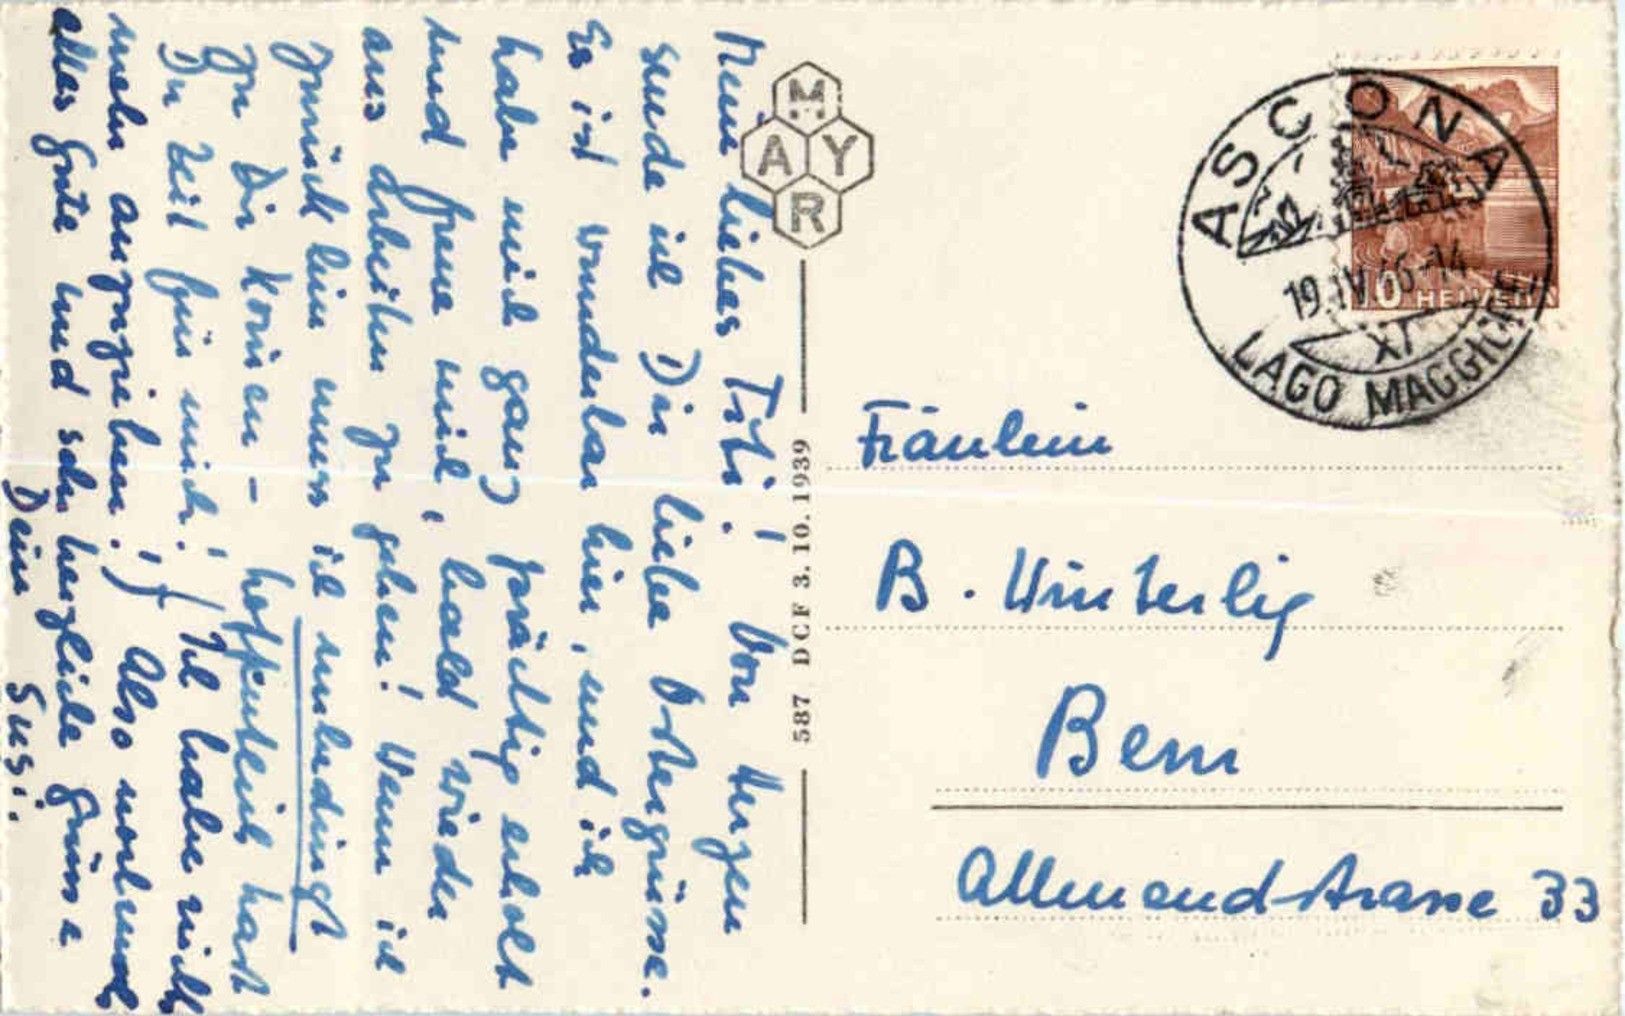 Mein liebes Titi! Von Herzen
sende ich Dir liebe Ostergrüsse.
Es ist wunderbar hier, und ich
habe mich ganz prächtig erholt
und freue mich, bald wieder
ans Arbeiten zu gehen! Wenn ich
zurück bin muss ich unbedingt
zu Dir kom̄en – hoffentlich hast
Du Zeit für mich! Ich habe nicht
mehr Also nochmals
alles Gute und sehr herzliche Grüsse
Dein Susi.
MAYR
587 DCF 3.10.1939
ASCONA
19.IV.46-14
XI
LAGO MAGGIORE
10 HELVETIA
Fräulein
B. Winterlig
Bern
Allmendstrasse 33